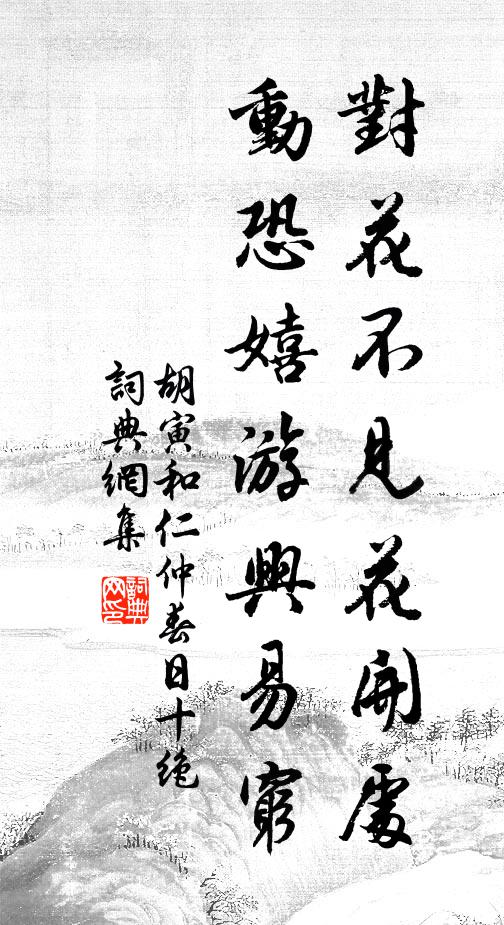 對花不見花開處
動恐嬉游興易窮
胡寅和仁仲春日十絶
詞典網集
詞典網印